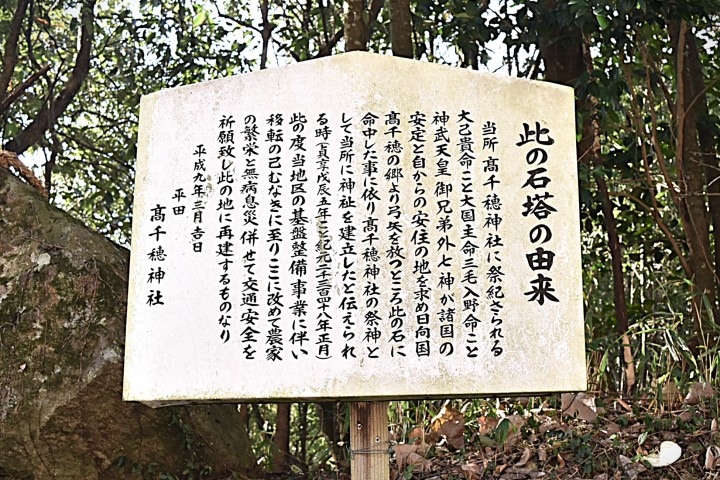 此の石塔の由来
当所高千穂神社に祭紀さられる
大己貴命こと大国主命三毛入野命こと
神武天皇御兄弟外七神が諸国の
安定と自からの安住の地を求め日向国
高千穂の郷より弓矢を放つところ此の石に
命中した事に依り高千穂神社の祭神と
して当所に神祉を建立したと伝えられ
る時(貞享戊辰五年こと紀元二千三百四十八年正月)
此の度当地区の基盤整備事業に伴い
移転の己むなきに至りここに改めて農家
の繁栄と無病息災、併せて交通安全を
祈願致し此の地に再建するものなり
平成九年三月吉日
平田
高千穂神社